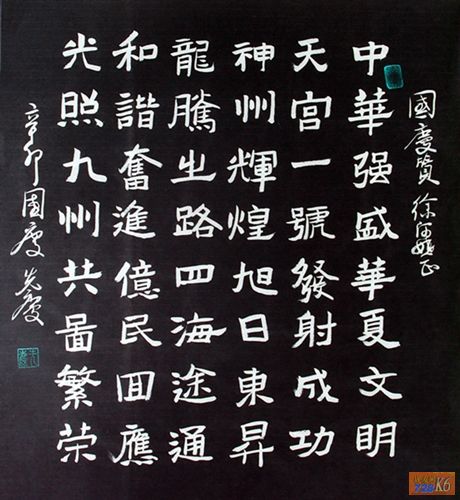 國慶贊
中華强盛華夏文明
天宫一號發射成功
神州輝煌旭日東昇
龍騰出路四海途通
和諧奮進億民囬應
光照九州共啚繁荣
辛卯國慶 先慶
K6